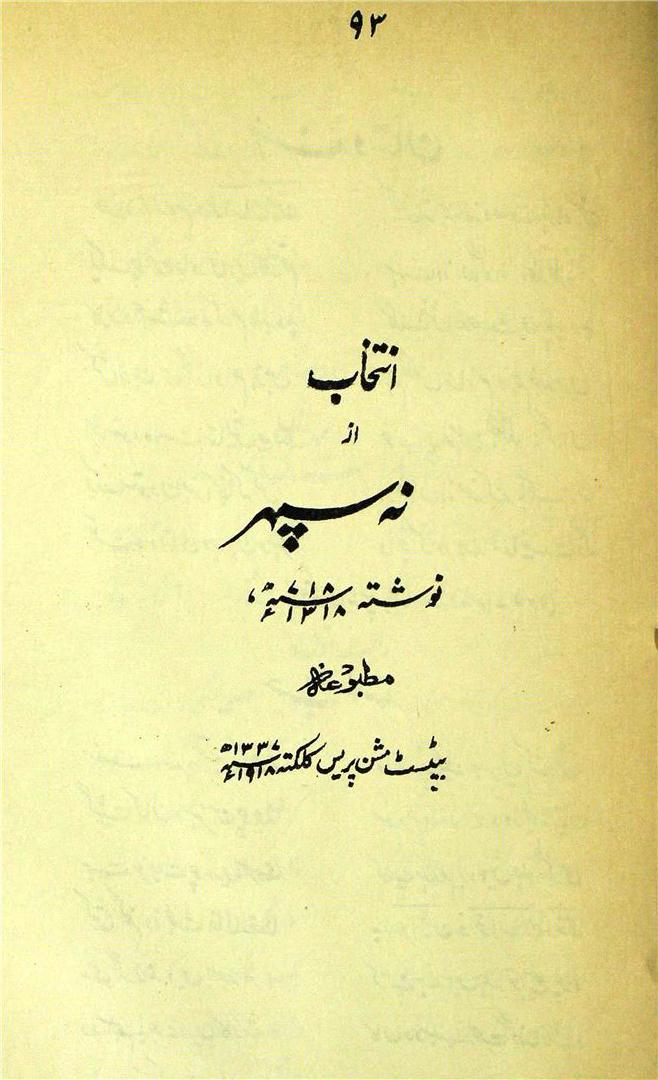 ۹۳
انتخاب
از
نہ سپہر
نوشتہ ۷۱۸ھ ۱۳۱۸ء،
مطبوعہ
بپٹسٹ مشن پریس کلکتہ ۱۳۳۷ھ ۱۹۱۸ء